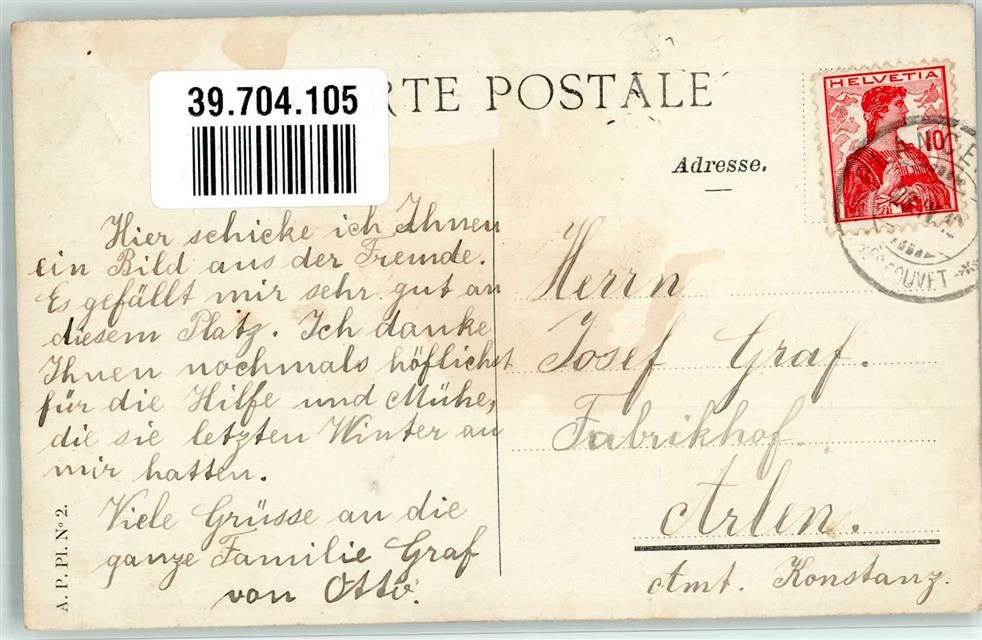 39.704.105
RTE POSTALE
HELVETIA
10
Adresse.
Hier schicke ich Ihnen
ein Bild aus der Fremde.
Es gefällt mir sehr gut an
diesem Platz. Ich danke
Ihnen nochmals höflichst
für die Hilfe und Mühe,
die sie letzten Winter an
mir hatten.
Viele Grüsse an die
ganze Familie Graf
von Otto.
Herrn
Josef Graf.
Fabrikhof.
Arlen.
Amt. Konstanz.
COUVET
A. P. Pl. Nº 2.